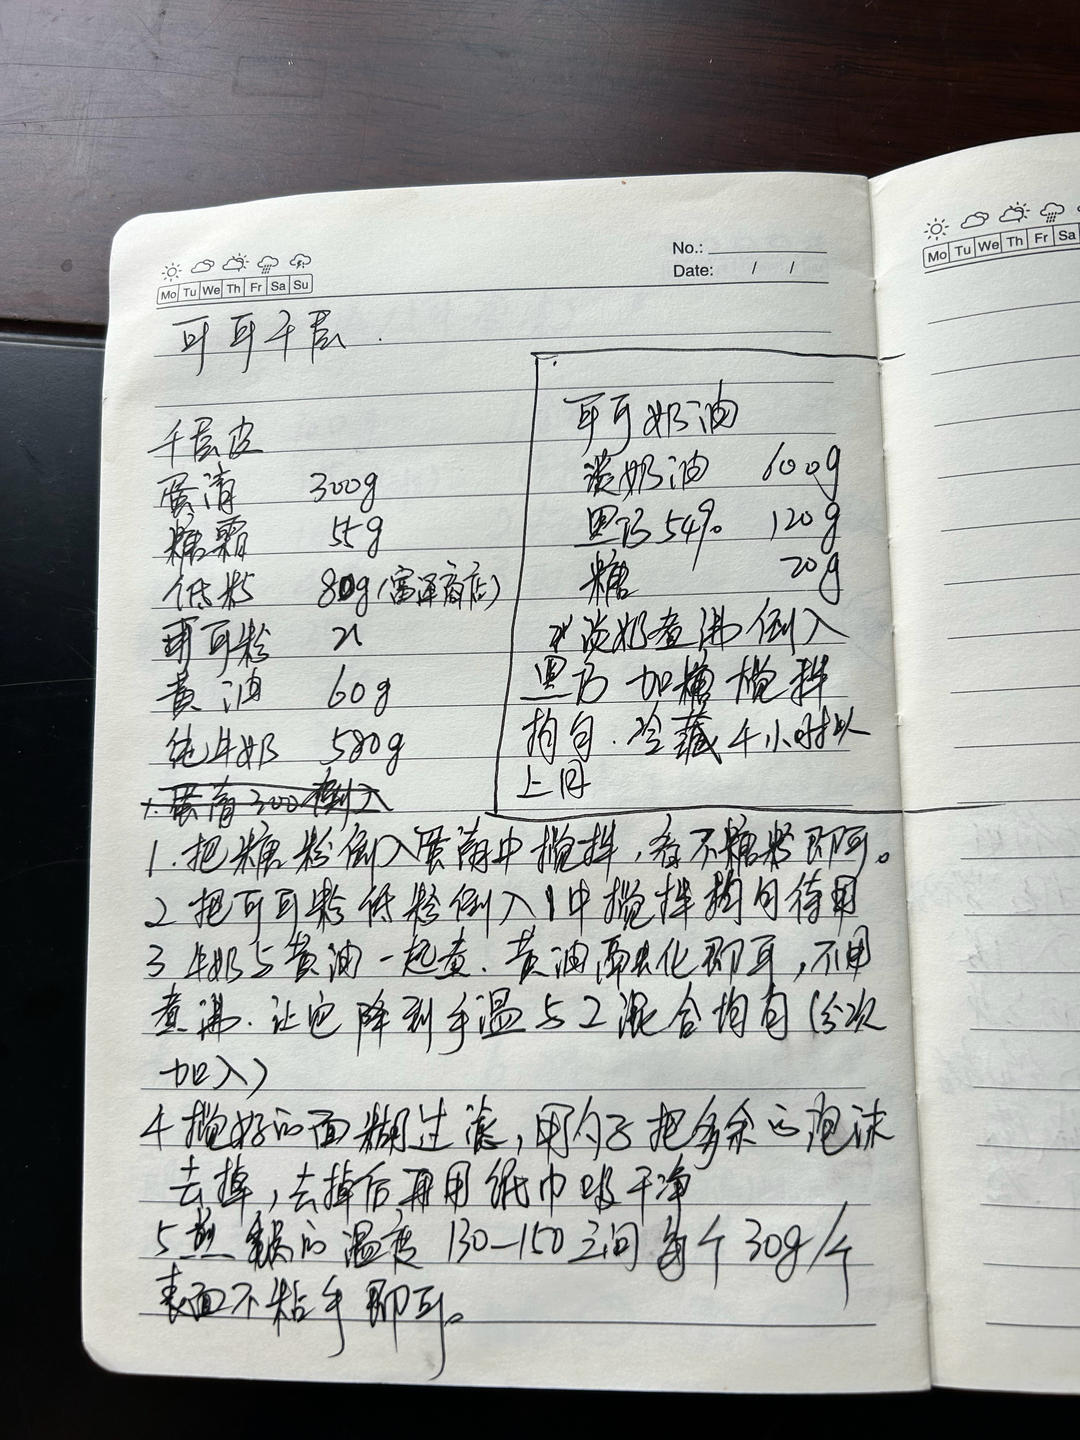 No.:
Date: / /
Mo Tu We Th Fr Sa Su
Mo Tu We Th Fr Sa
可可千层.
千层皮
蛋清 300g
糖霜 55g
低粉 80g(富泽商店)
可可粉 21
黄油 60g
纯牛奶 580g
1.蛋清300倒入
可可奶油
淡奶油 600g
黑巧54% 120g
糖 20g
淡奶煮沸倒入
黑巧 加糖搅拌
均匀.冷藏4小时以
上用
1.把糖粉倒入蛋清中搅拌,看不糖粉即可。
2把可可粉低粉倒入1中搅拌均匀待用
3牛奶与黄油一起煮.黄油融化即可,不用
煮沸.让它降到手温与2混合均匀(分次
加入)
4搅好的面糊过滤,用勺子把多余的泡沫
去掉,去掉后再用纸巾吸干净
5煎锅的温度130-150之间每个30g/个
表面不粘手即可。